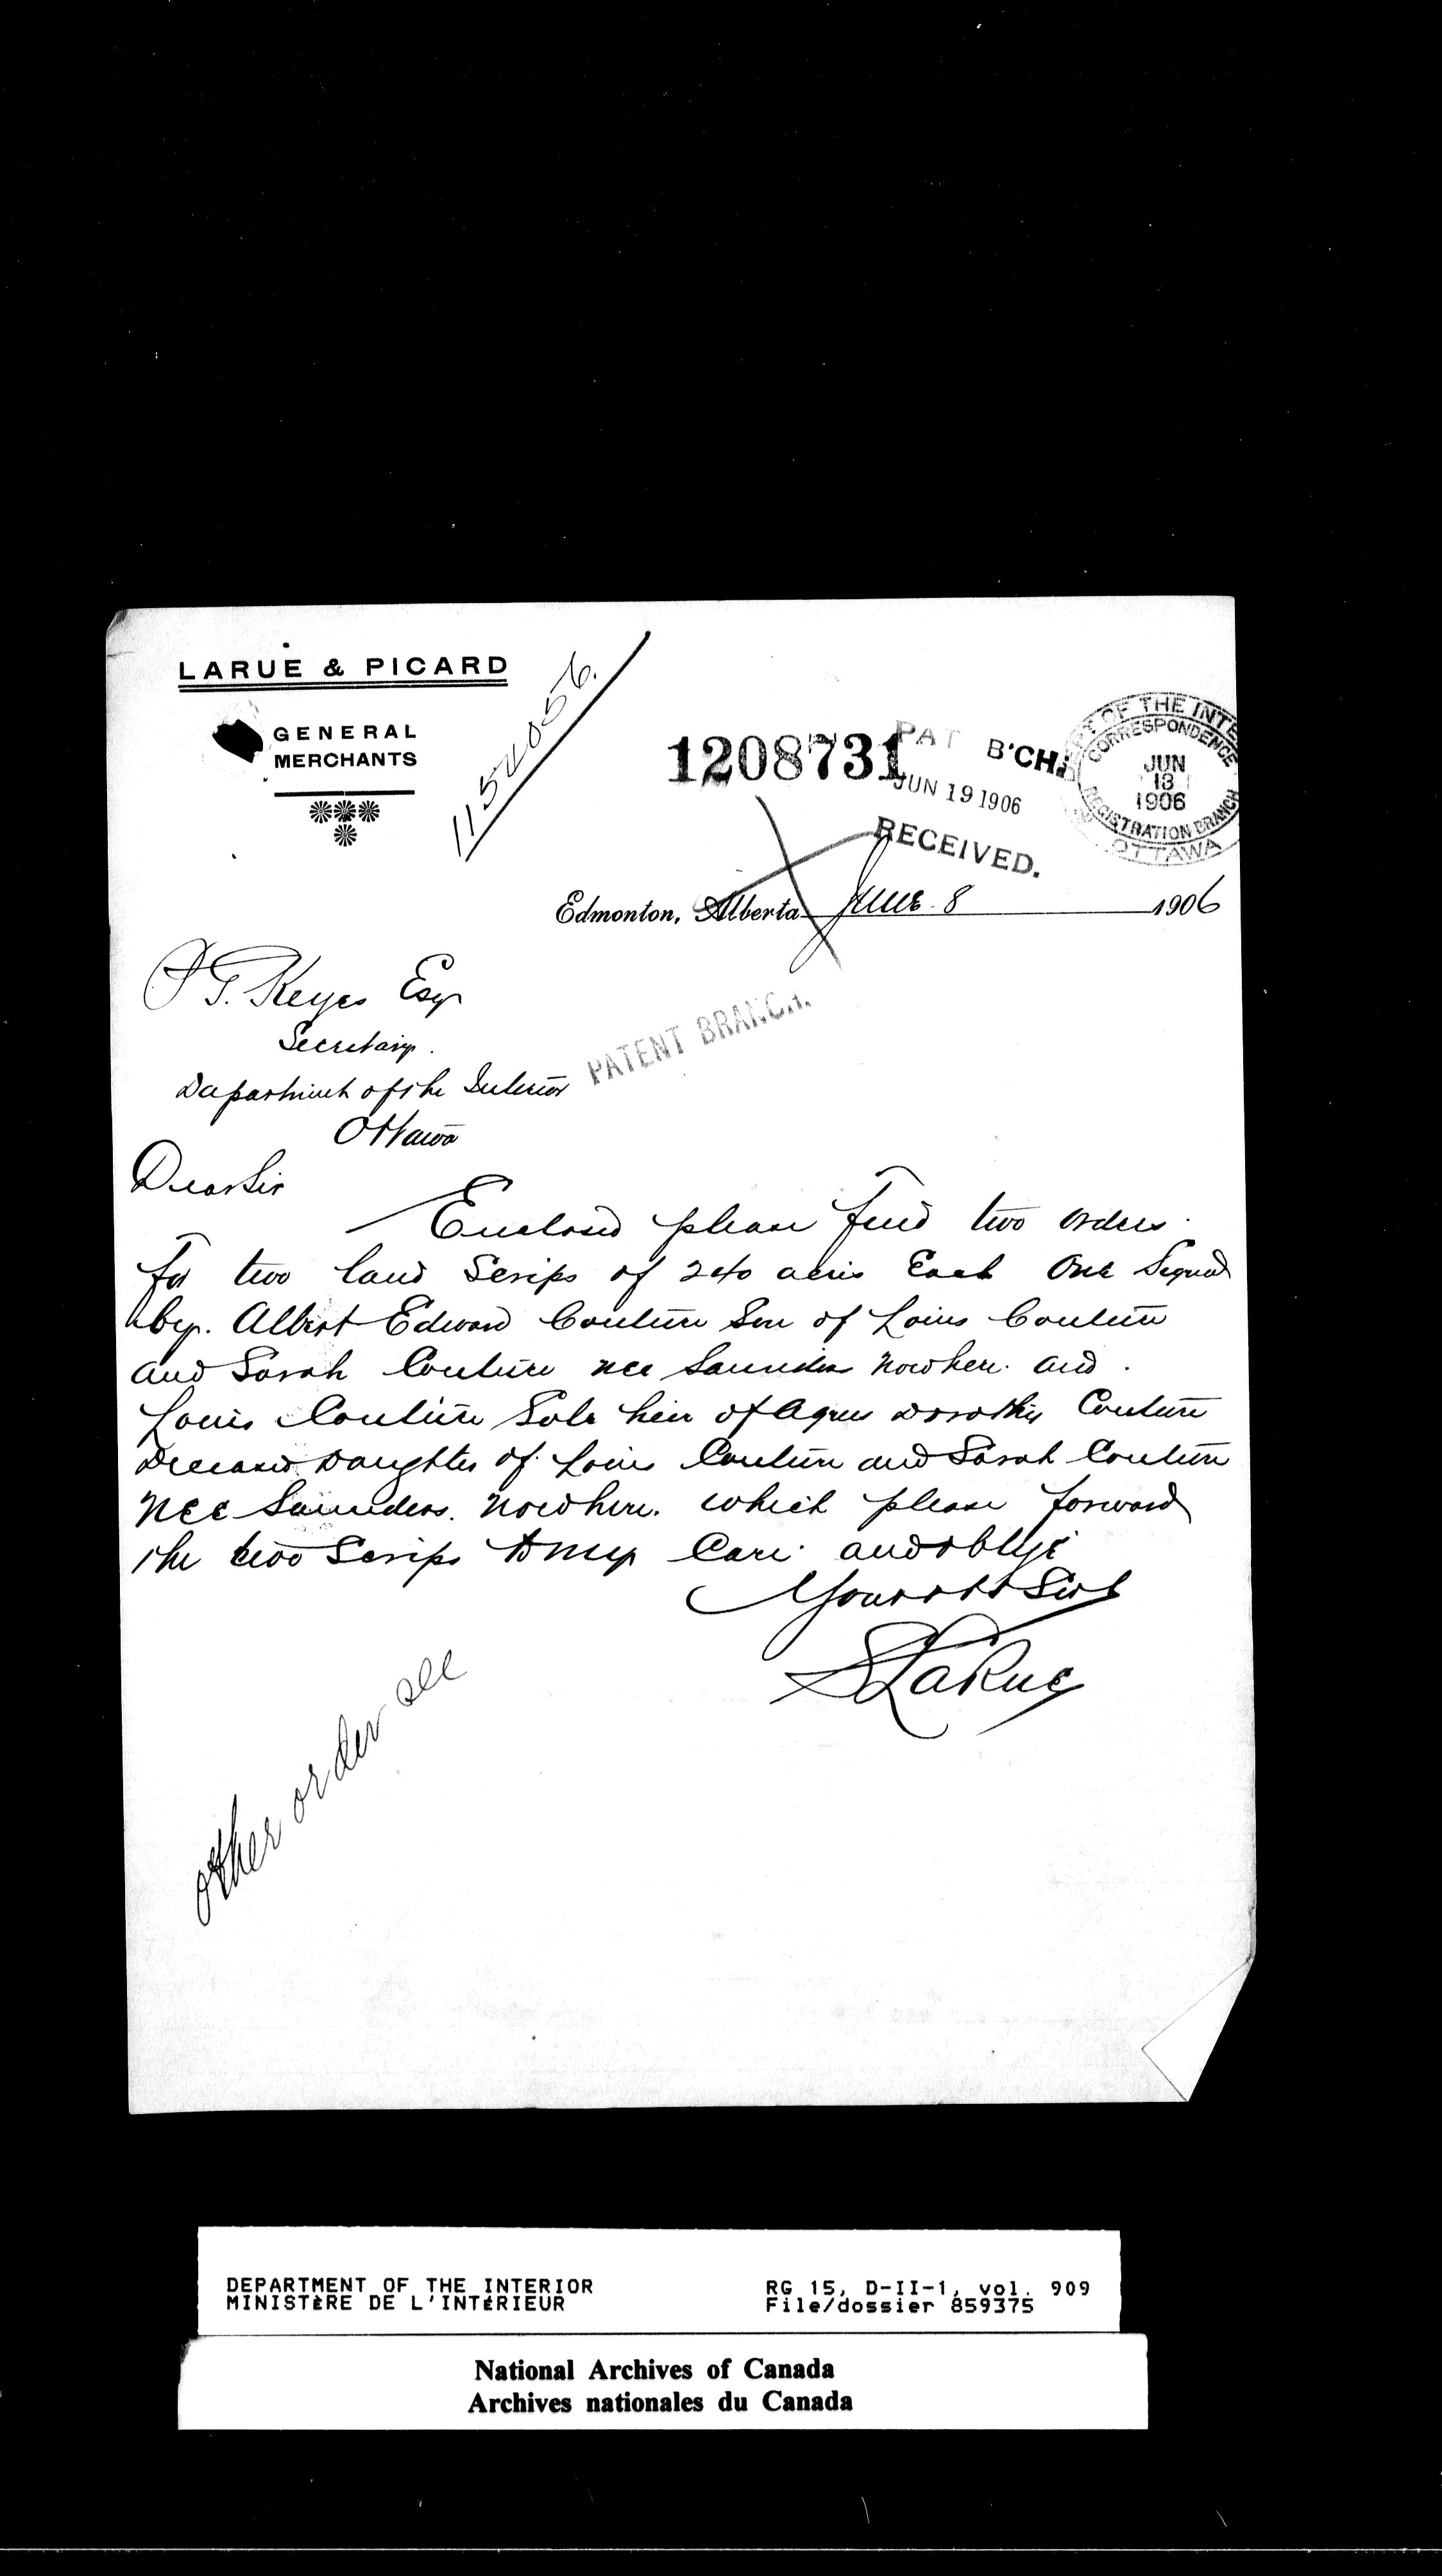 LARUE & PICARD
GENERAL
MERCHANTS
1152056.
1208731
PAT B'CH.
JUN 19 1906
RECEIVED.
DEPT OF THE INTE
CORRESPONDENCE
JUN
13
1906
REGISTRATION BRANCH
OTTAWA
Edmonton, Alberta June 8 1906
P. G. Keyes Esqr
Secretary.
Department of the Interior
PATENT BRANCH.
Ottawa
Dear Sir
Enclosed please find two orders
for two land Scrips of 240 acres Each One Signed
by. Albert Edward Couture Son of Louis Couture
and Sarah Couture nee Saunders now here. and.
Louis Couture Sole heir of Agnes Dorothy Couture
Deceased Daughter of Louis Couture and Sarah Couture
nee Saunders. now here. which please forward
the two Scrips to my Care. and oblige
Your obt Sert
S LaRue
other order see
DEPARTMENT OF THE INTERIOR
MINISTÈRE DE L'INTÉRIEUR
RG 15, D-II-1, vol. 909
File/dossier 859375
National Archives of Canada
Archives nationales du Canada